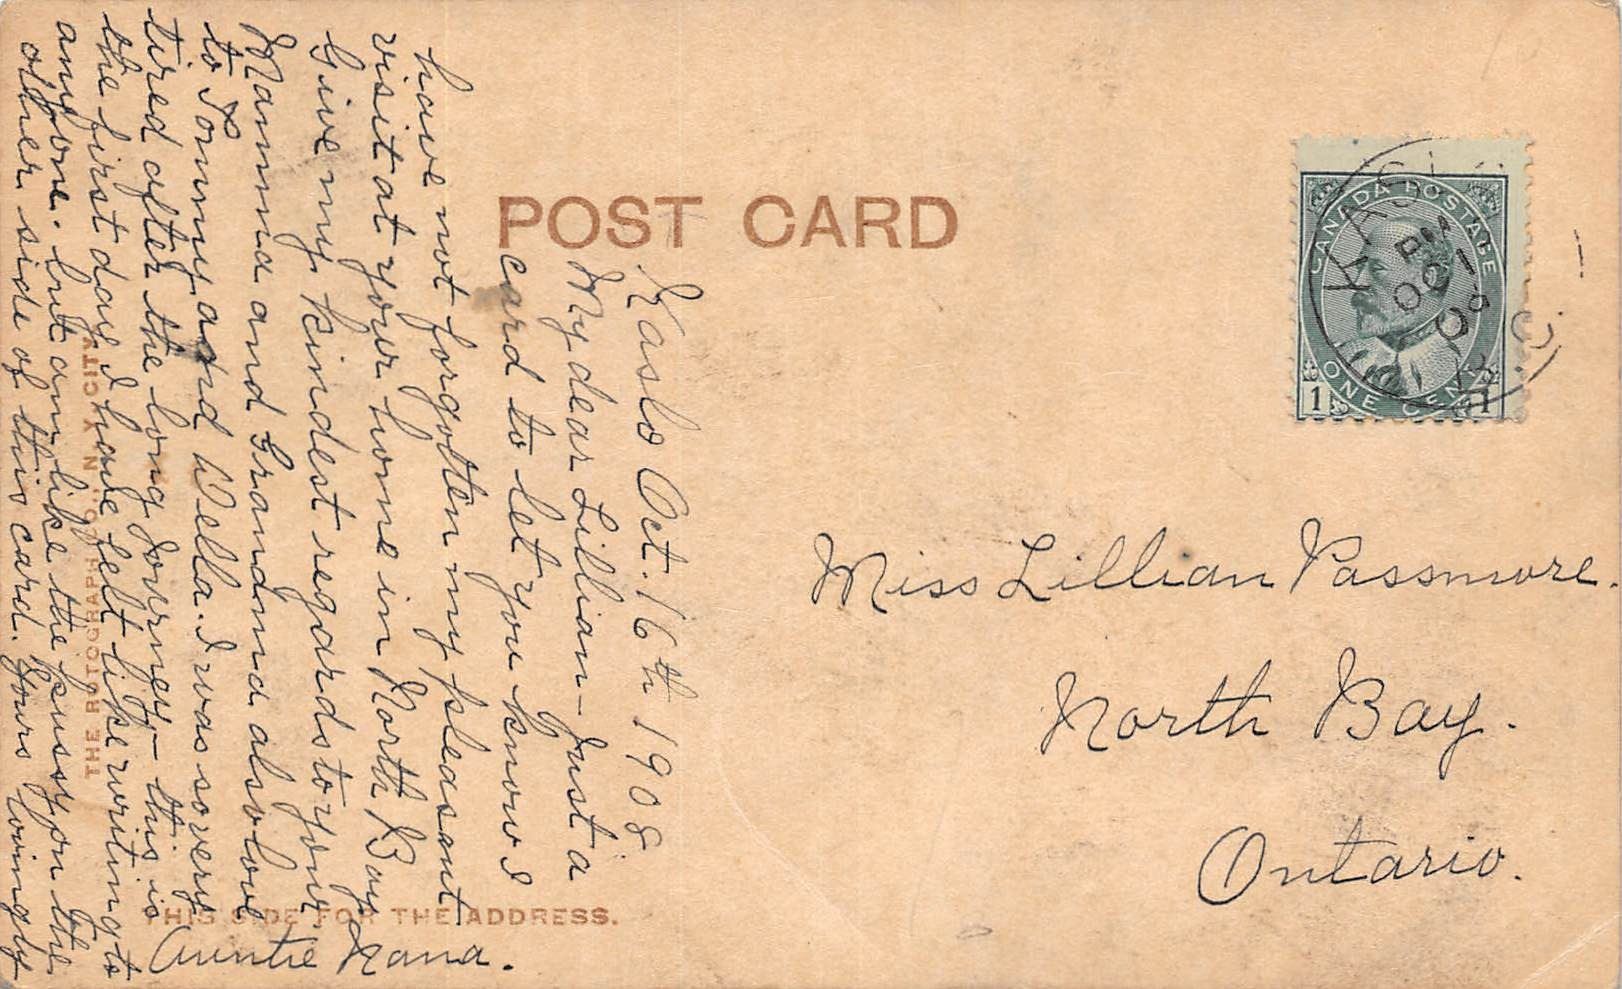 POST CARD
Kaslo Oct. 16th 1908.
My dear Lillian - Just a
card to let you know I
have not forgotten my pleasant
visit at your home in North Bay
Give my kindest regards to your
Mamma and Grandma also love
to Tommy and Wella. I was so very
tired after the long journey - this is
the first day I have felt like writing to
anyone. but am like the pussy on the
other side of this card. Yours lovingly
Auntie Kana.
THIS SIDE FOR THE ADDRESS.
THE ROTOGRAPH CO., N.Y. CITY
CANADA POSTAGE
ONE CENT
1 1
KASLO
PM
OC 1
08
B.C.
Miss Lillian Passmore.
North Bay.
Ontario.